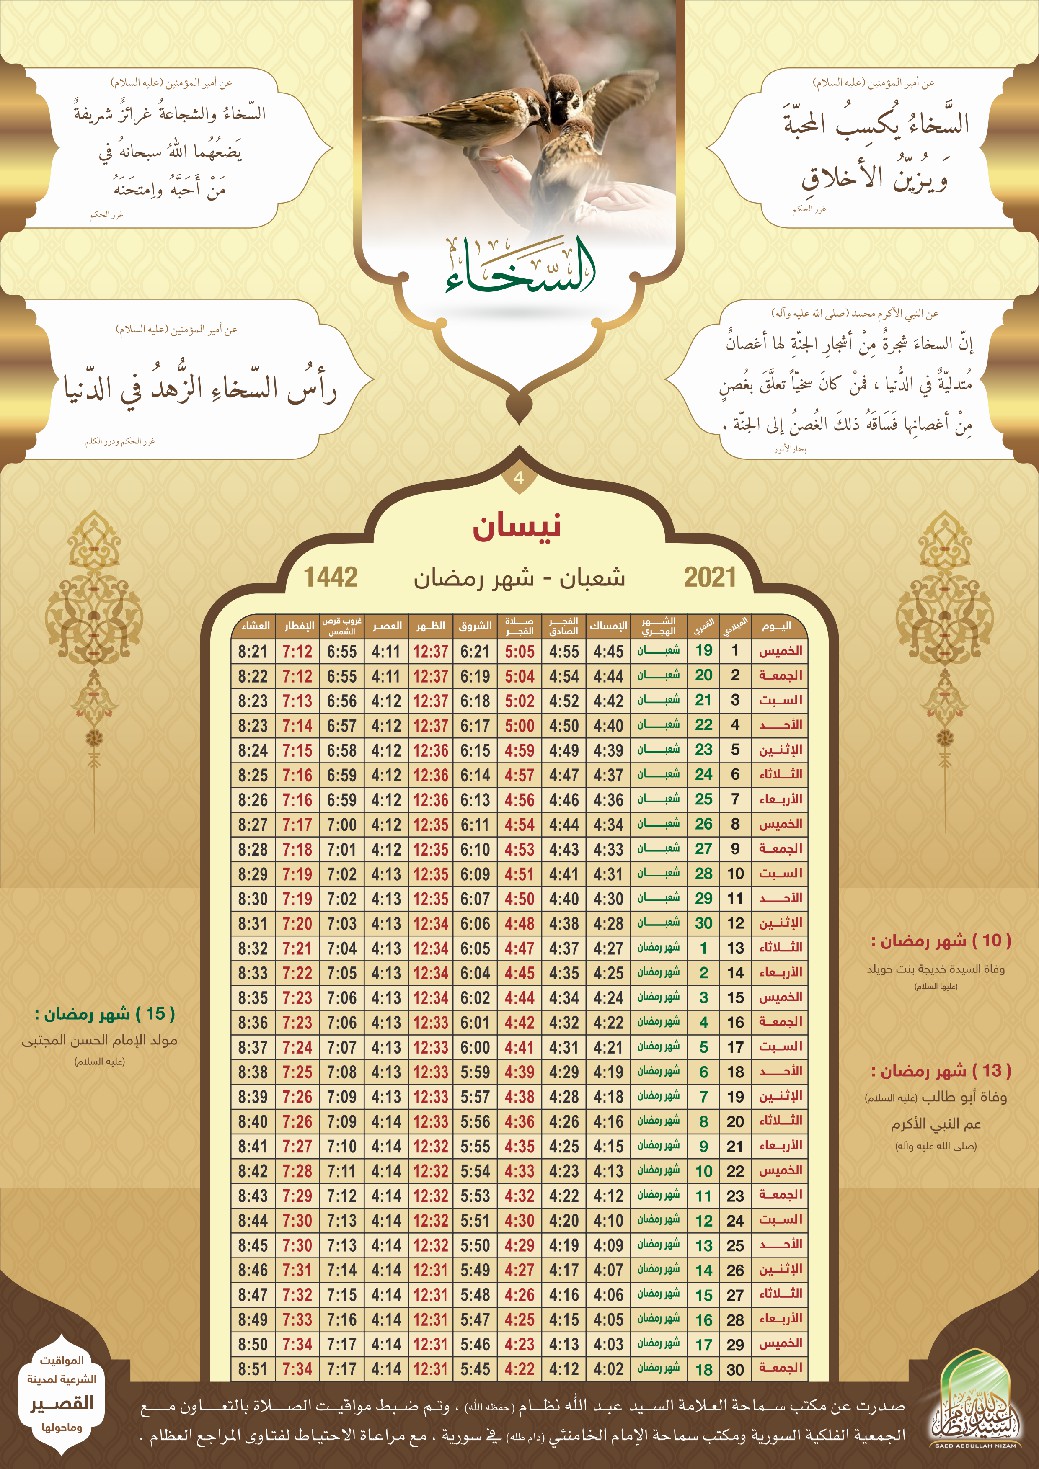 عن أمير المؤمنين (عليه السلام)
السَّخاءُ يُكسِبُ المحبّةَ
وَيُزيّنُ الأخلاقِ
غرر الحكم
عن أمير المؤمنين (عليه السلام)
السّخاءُ والشجاعةُ غرائزٌ شريفةٌ
يَضعُهُما اللهُ سبحانهُ في
مَنْ أَحَبَّهُ وامتحَنَهُ
غرر الحكم
السّخاء
عن النبي الأكرم محمد (صلى الله عليه وآله)
إنّ السخاءَ شجرةٌ مِنْ أشجارِ الجنّةِ لها أغصانٌ
مُتدليّةٌ في الدُّنيا ، فمَنْ كانَ سخيّاً تعلّقَ بغُصنٍ
مِنْ أغصانِها فَسَاقَهُ ذلكَ الغُصنُ إلى الجنّة .
بحار الأنور
عن أمير المؤمنين (عليه السلام)
رأسُ السّخاءِ الزُّهدُ في الدّنيا
غرر الحكم ودرر الكلم
4
نيسان
2021 شعبان - شهر رمضان 1442
اليوم الميلادي القمري الشهر الهجري الإمساك الفجر الصادق صلاة الفجر الشروق الظهر العصر غروب قرص الشمس الإفطار العشاء
الخميس 1 19 شعبان 4:45 4:55 5:05 6:21 12:37 4:11 6:55 7:12 8:21
الجمعة 2 20 شعبان 4:44 4:54 5:04 6:19 12:37 4:11 6:55 7:12 8:22
السبت 3 21 شعبان 4:42 4:52 5:02 6:18 12:37 4:12 6:56 7:13 8:23
الأحد 4 22 شعبان 4:40 4:50 5:00 6:17 12:37 4:12 6:57 7:14 8:23
الإثنين 5 23 شعبان 4:39 4:49 4:59 6:15 12:36 4:12 6:58 7:15 8:24
الثلاثاء 6 24 شعبان 4:37 4:47 4:57 6:14 12:36 4:12 6:59 7:16 8:25
الأربعاء 7 25 شعبان 4:36 4:46 4:56 6:13 12:36 4:12 6:59 7:16 8:26
الخميس 8 26 شعبان 4:34 4:44 4:54 6:11 12:35 4:12 7:00 7:17 8:27
الجمعة 9 27 شعبان 4:33 4:43 4:53 6:10 12:35 4:12 7:01 7:18 8:28
السبت 10 28 شعبان 4:31 4:41 4:51 6:09 12:35 4:13 7:02 7:19 8:29
الأحد 11 29 شعبان 4:30 4:40 4:50 6:07 12:35 4:13 7:02 7:19 8:30
الإثنين 12 30 شعبان 4:28 4:38 4:48 6:06 12:34 4:13 7:03 7:20 8:31
الثلاثاء 13 1 شهر رمضان 4:27 4:37 4:47 6:05 12:34 4:13 7:04 7:21 8:32
الأربعاء 14 2 شهر رمضان 4:25 4:35 4:45 6:04 12:34 4:13 7:05 7:22 8:33
الخميس 15 3 شهر رمضان 4:24 4:34 4:44 6:02 12:34 4:13 7:06 7:23 8:35
الجمعة 16 4 شهر رمضان 4:22 4:32 4:42 6:01 12:33 4:13 7:06 7:23 8:36
السبت 17 5 شهر رمضان 4:21 4:31 4:41 6:00 12:33 4:13 7:07 7:24 8:37
الأحد 18 6 شهر رمضان 4:19 4:29 4:39 5:59 12:33 4:13 7:08 7:25 8:38
الإثنين 19 7 شهر رمضان 4:18 4:28 4:38 5:57 12:33 4:13 7:09 7:26 8:39
الثلاثاء 20 8 شهر رمضان 4:16 4:26 4:36 5:56 12:33 4:14 7:09 7:26 8:40
الأربعاء 21 9 شهر رمضان 4:15 4:25 4:35 5:55 12:32 4:14 7:10 7:27 8:41
الخميس 22 10 شهر رمضان 4:13 4:23 4:33 5:54 12:32 4:14 7:11 7:28 8:42
الجمعة 23 11 شهر رمضان 4:12 4:22 4:32 5:53 12:32 4:14 7:12 7:29 8:43
السبت 24 12 شهر رمضان 4:10 4:20 4:30 5:51 12:32 4:14 7:13 7:30 8:44
الأحد 25 13 شهر رمضان 4:09 4:19 4:29 5:50 12:32 4:14 7:13 7:30 8:45
الإثنين 26 14 شهر رمضان 4:07 4:17 4:27 5:49 12:31 4:14 7:14 7:31 8:46
الثلاثاء 27 15 شهر رمضان 4:06 4:16 4:26 5:48 12:31 4:14 7:15 7:32 8:47
الأربعاء 28 16 شهر رمضان 4:05 4:15 4:25 5:47 12:31 4:14 7:16 7:33 8:49
الخميس 29 17 شهر رمضان 4:03 4:13 4:23 5:46 12:31 4:14 7:17 7:34 8:50
الجمعة 30 18 شهر رمضان 4:02 4:12 4:22 5:45 12:31 4:14 7:17 7:34 8:51
( 10 ) شهر رمضان :
وفاة السيدة خديجة بنت خويلد
(عليها السلام)
( 13 ) شهر رمضان :
وفاة أبو طالب (عليه السلام)
عم النبي الأكرم
(صلى الله عليه وآله)
( 15 ) شهر رمضان :
مولد الإمام الحسن المجتبى
(عليه السلام)
صدرت عن مكتب سماحة العلامة السيد عبد الله نظام (حفظه الله) ، وتم ضبط مواقيت الصلاة بالتعاون مع
الجمعية الفلكية السورية ومكتب سماحة الإمام الخامنئي (دام ظله) في سورية ، مع مراعاة الاحتياط لفتاوى المراجع العظام .
المواقيت
الشرعية لمدينة
القصير
وماحولها
السيد عبد الله نظام
SAED ABDULLAH NIZAM